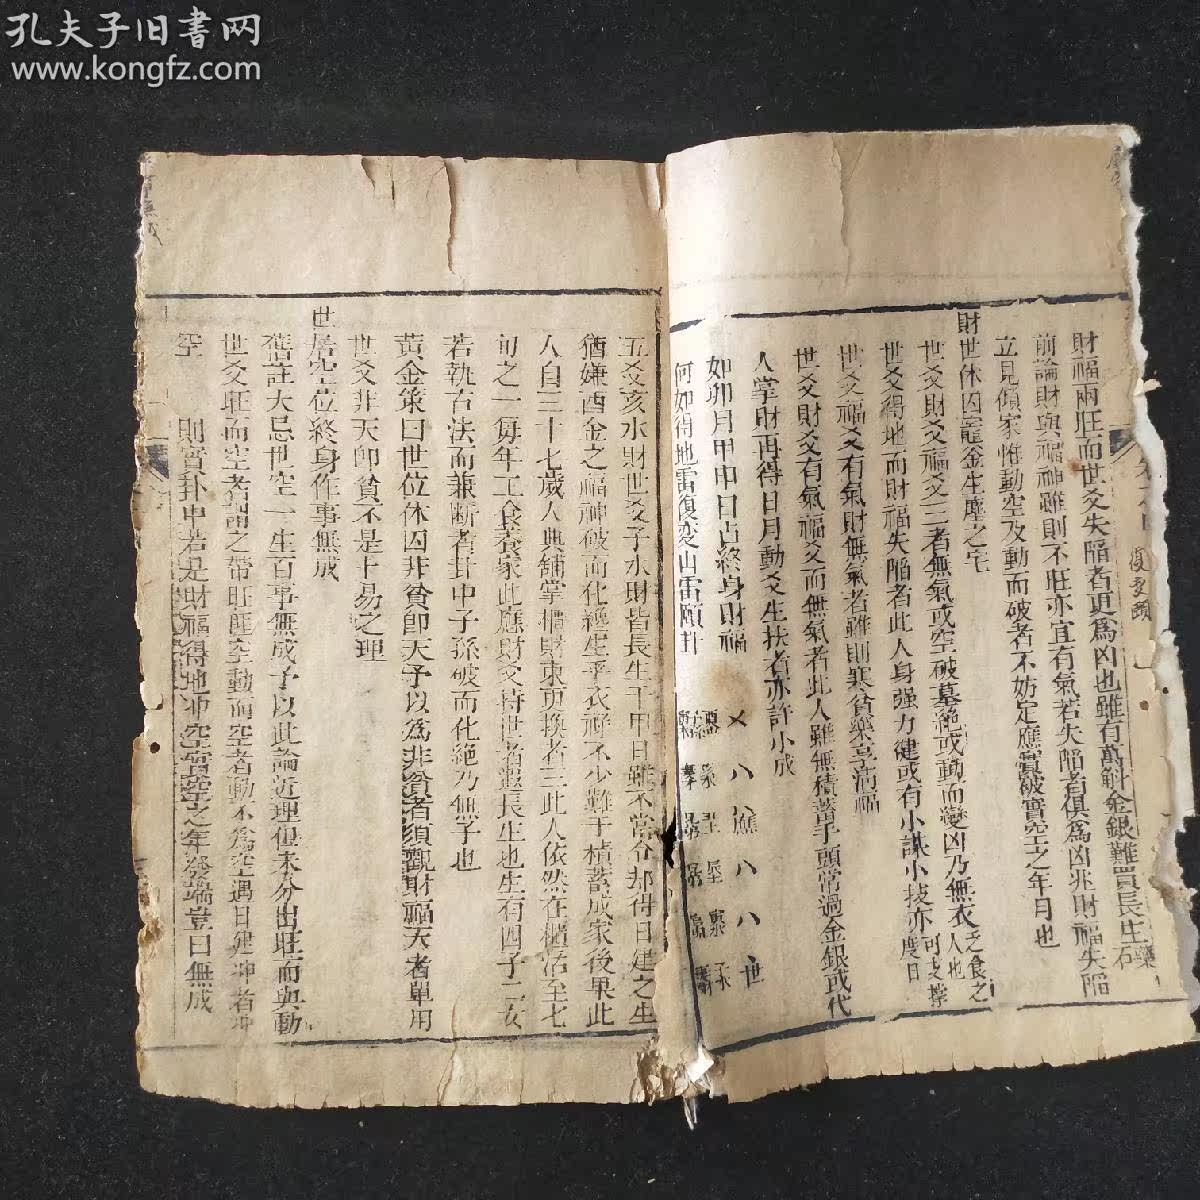 孔夫子旧書网
www.kongfz.com
財福兩旺而世爻失陷者更爲凶也雖有萬斛金銀難買長生藥
前論財與福神雖則不旺亦宜有氣若失陷者俱爲凶兆財福失陷
立見傾家惟動空及動而破者不妨定應實破實空之年月也
財世休囚竈金生塵之宅
世爻財爻福爻三者無氣或空破墓絕或動而變凶乃無衣
世爻得地而財福失陷者此人身强力健或有小謀小技亦可支撐度日
世爻福爻有氣財無氣者雖則寒貧樂享淸福
世爻財爻有氣福爻而無氣者此人雖無積蓄手頭常過金銀或代
人掌財再得日月動爻生扶者亦許小成
如卯月甲申日占終身財福
何如得地雷復变山雷頤卦
五爻亥水財世爻子水財皆長生于甲日雖不當令却得日建之生
猶嫌酉金之福神破而化絕生平衣祿不少難于積蓄成家後果此
人自三十七歲人典舖掌櫃財東更換者三此人依然在櫃活至七
旬之一每年工食養家此應財爻持世者遇長生也生有四子二女
若執古法而兼斷者卦中子孫破而化絶乃無子也
黄金策曰世位休囚非貧卽夭予以爲非貧者須觀財福夭者單用
世爻非夭卽貧不是卜易之理
世居空位終身作事無成
舊註大忌世空一生百事無成予以此論近理但未分出旺而與動
世爻旺而空者謂之帶旺匪空動而空者動不爲空遇日建冲者冲
空則實卦中若是財福得地冲空實空之年發端豈曰無成